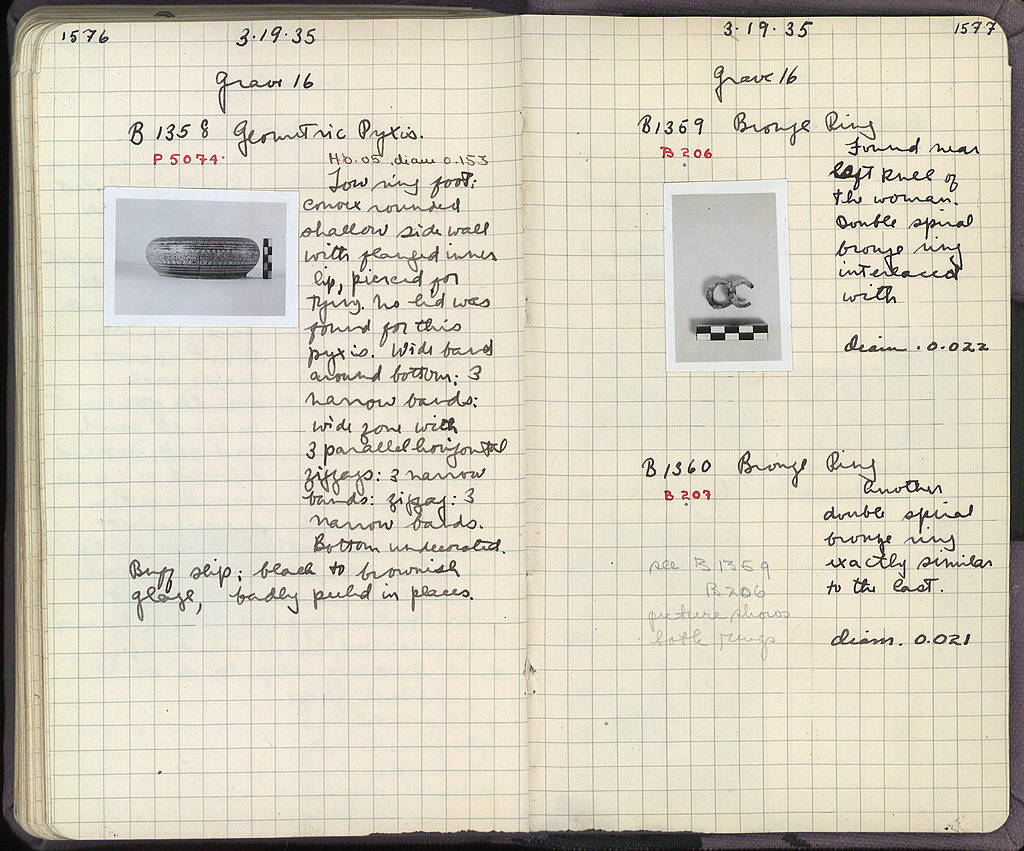 1576
3.19.35
Grave 16
B 1358 Geometric Pyxis.
P 5074.
H 0.05 diam 0.153
Low ring foot:
convex rounded
shallow side wall
with flanged inner
lip, pierced for
tying. No lid was
found for this
pyxis. Wide band
around bottom; 3
narrow bands:
wide zone with
3 parallel horizontal
zigzags: 3 narrow
bands: zigzag: 3
narrow bands.
Bottom undecorated.
Buff slip; black to brownish
glaze, badly peeled in places.
3.19.35
1577
Grave 16
B1359 Bronze Ring
B 206
Found near
left knee of
the woman.
Double spiral
bronze ring
interlaced
with
diam. 0.022
B1360 Bronze Ring
B 207
Another
double spiral
bronze ring
exactly similar
to the last.
see B 1359
B206
picture shows
both rings
diam. 0.021